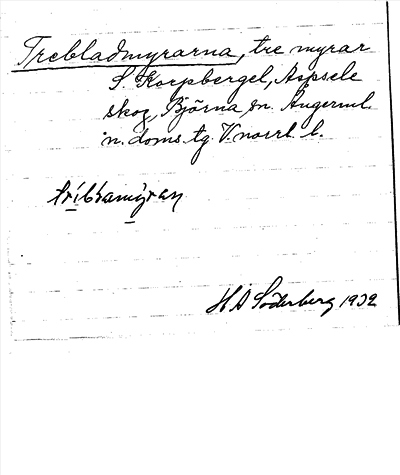 Trebladmyrarna, tre myrar
S. Korpberget, Aspsele
skog, Björna sn. Ångerml.
n. doms. tg. V.norrl. l.
H A Söderberg 1932